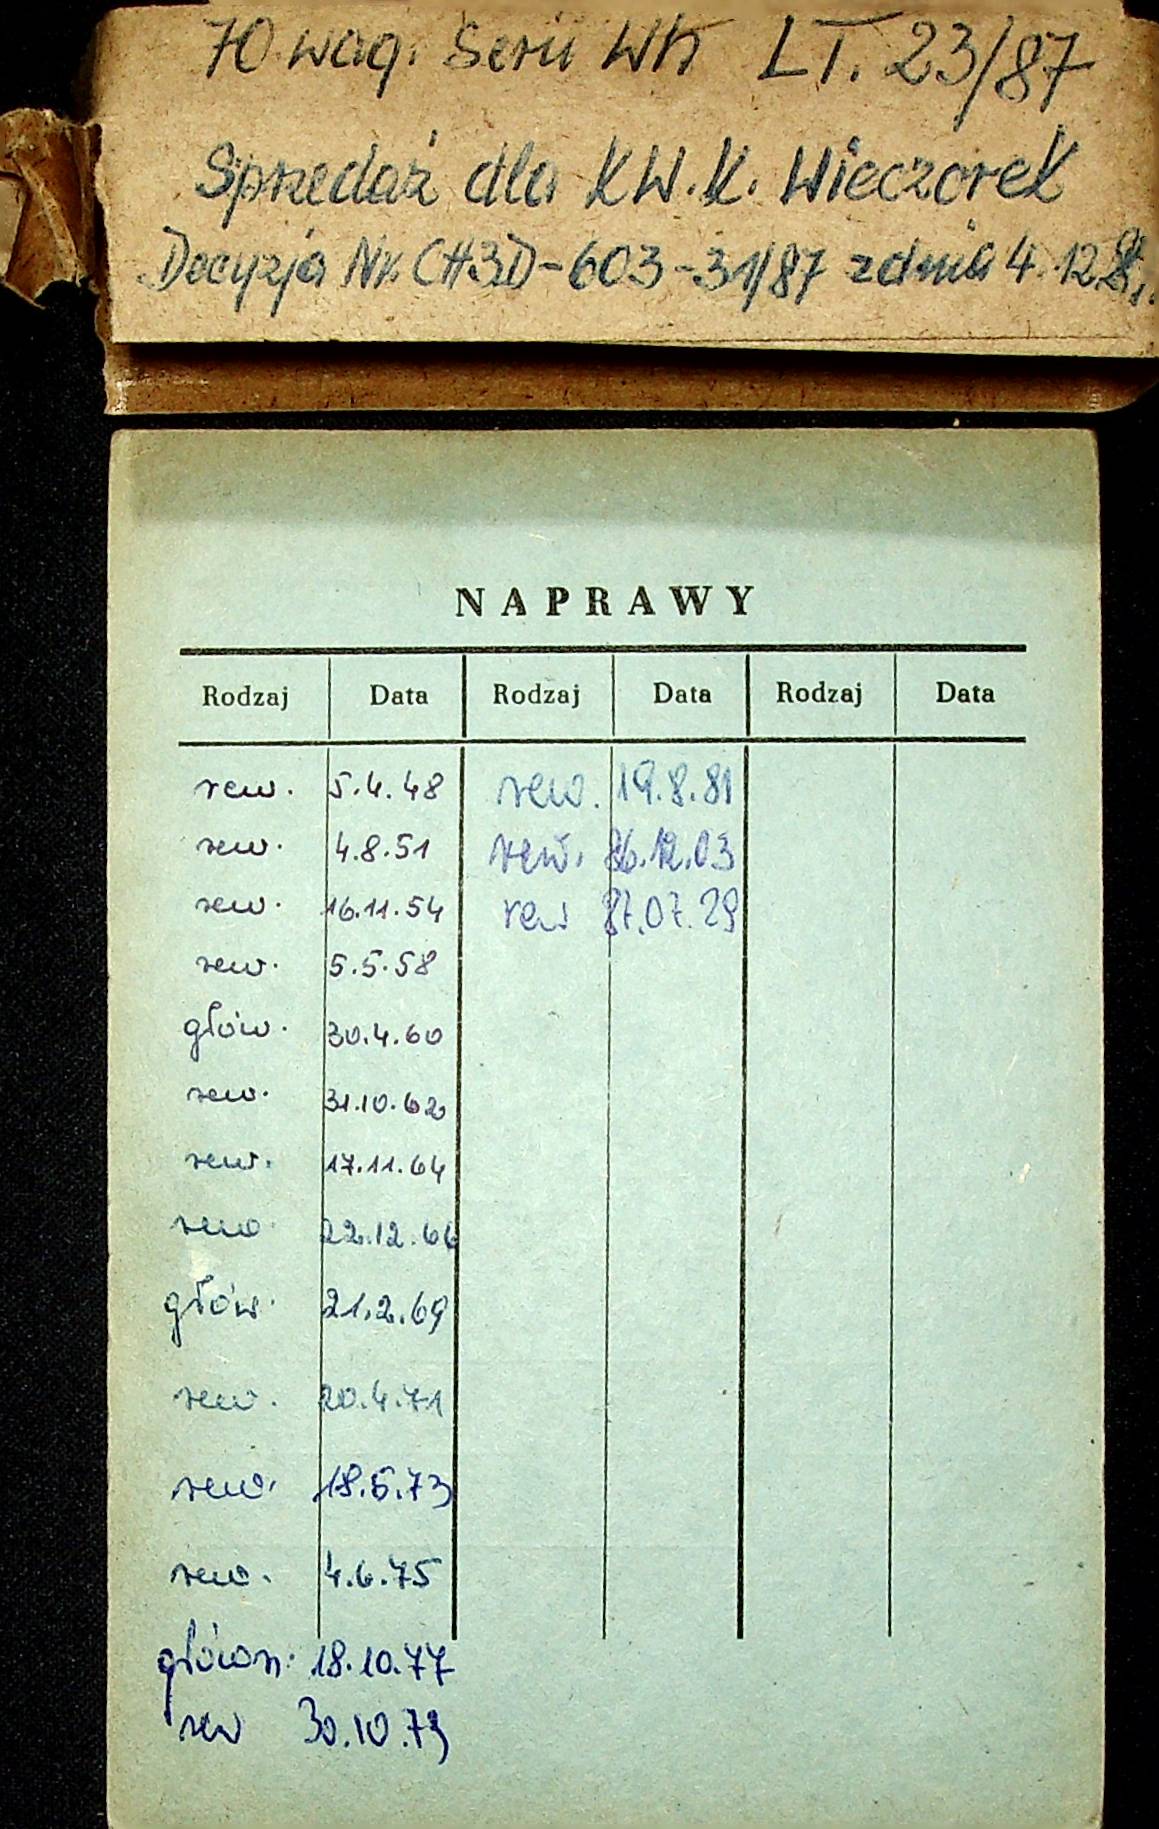 70 wag. Serii Wh LT. 23/87
Sprzedaż dla KW.K. Wieczorek
Decyzja Nr. CH3D-603-31/87 z dnia 4.12.
NAPRAWY
Rodzaj Data Rodzaj Data Rodzaj Data
rew. 5.4.48 rew. 19.8.81
rew. 4.8.51 rew. 86.12.03
rew. 16.11.54 rew 87.07.29
rew. 5.5.58
głów. 30.4.60
rew. 31.10.62
rew. 17.11.64
rew. 22.12.66
głów. 21.2.69
rew. 20.4.71
rew. 18.5.73
rew. 4.6.75
główn. 18.10.77
rew 30.10.79